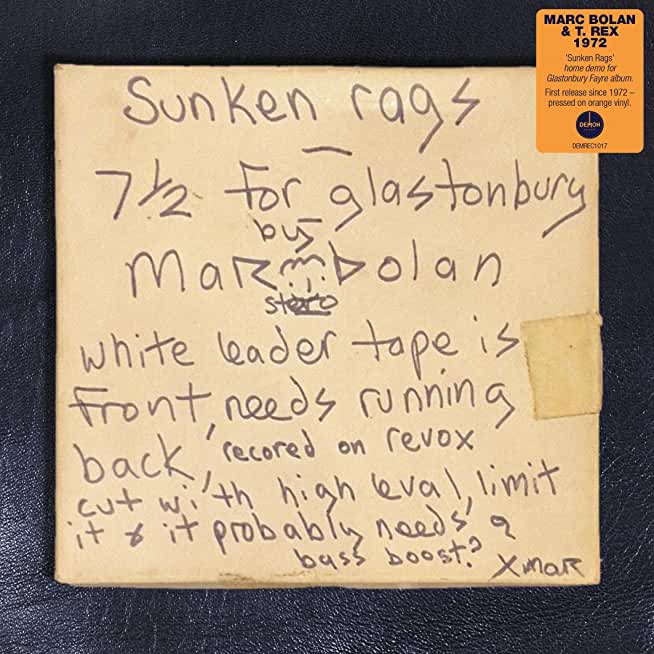 MARC BOLAN
& T. REX
1972
'Sunken Rags'
home demo for
Glastonbury Fayre album.
First release since 1972 –
pressed on orange vinyl.
DEMON
DEMREC1017
Sunken rags
7½ for glastonbury
by
Marc bolan
stero
white leader tape is
front, needs running
back, recored on revox
cut with high leval, limit
it & it probably needs a
bass boost? X mar